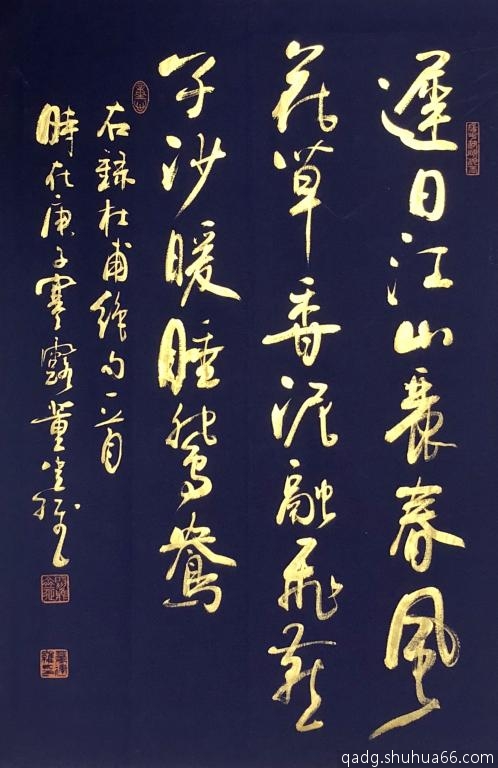 遲日江山麗春風
花草香泥融飛燕
子沙暖睡鴛鴦
右録杜甫絶句一首
時在庚子寒露董
qadg.shuhua66.com